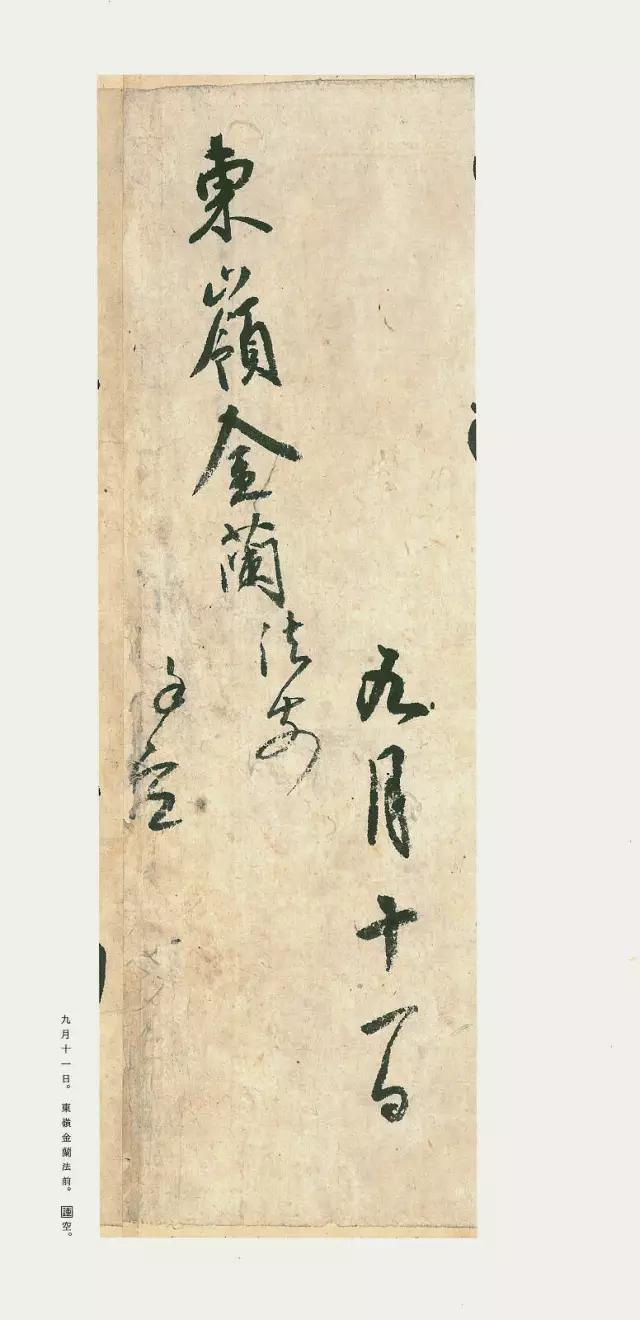 九月十一日
東嶺金蘭法前
謹空
九月十一日。東嶺金蘭法前。謹空。